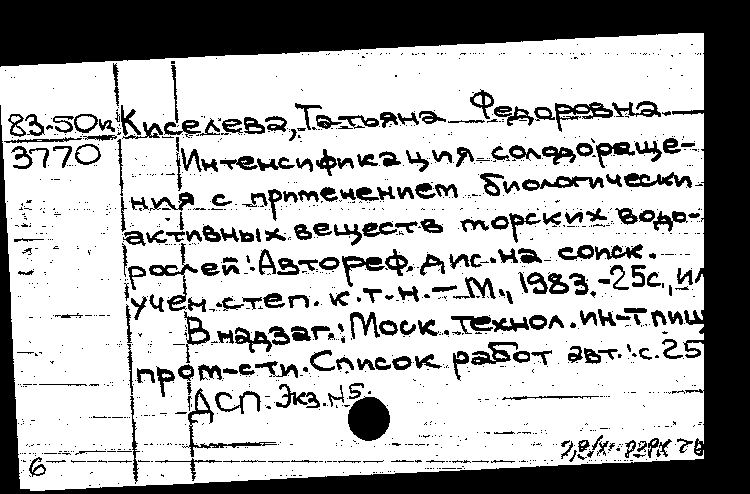 83-50к Киселева, Татьяна Федоровна
3770 Интенсификация солодораще-
ния с применением биологически
активных веществ морских водо-
рослей: Автореф. дис. на соиск.
учен. степ. к.т.н. – М., 1983. – 25с., ил
В надзаг.: Моск. технол. ин-т пищ
пром-сти. Список работ авт.: с. 25
ДСП. Экз. №5.
6